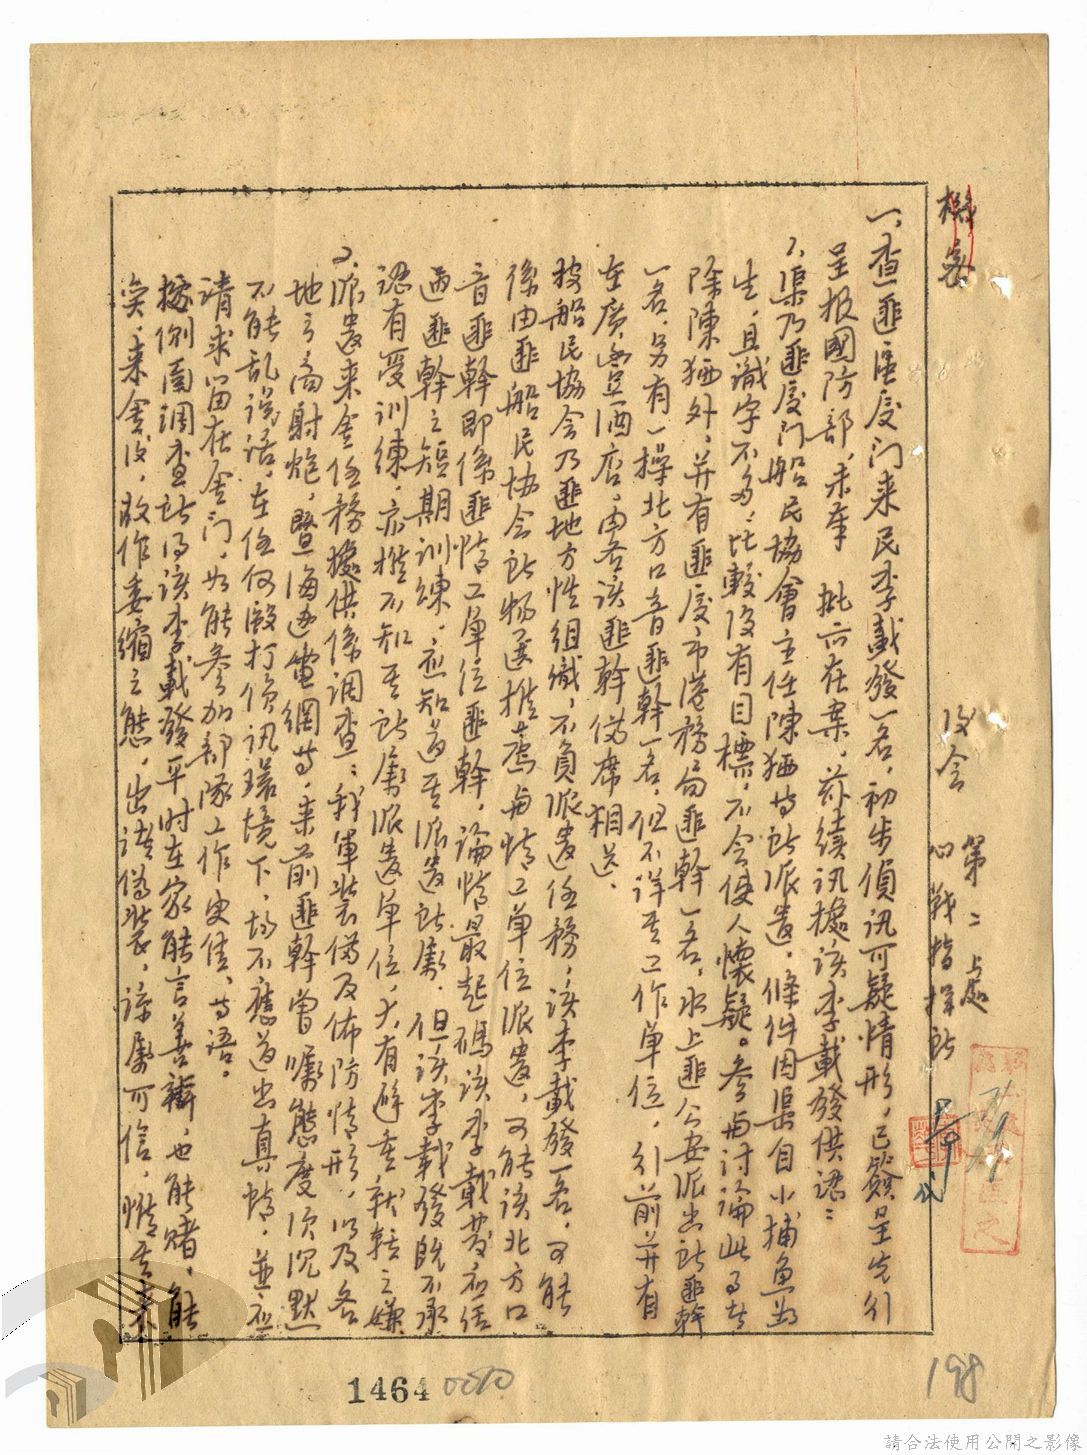 機密
收會
第二上處
心戰指揮所
一、查匪區厦门来民李載發一名,初步偵訊可疑情形,已簽呈先行
呈报國防部,未奉 批示在案,茲续訊據该李載發供認:
1、渠乃匪厦门船民協會主任陳猫等所派遣,條件因渠自小捕魚为
生,且識字不多,比較没有目標,不会使人懷疑。参与討論此事者
除陳猫外,并有匪厦市港務局匪幹一名,水上匪公安派出所匪幹
一名,另有一操北方口音匪幹一名,但不詳其工作單位,行前并有
在廣豐酒店,由各该匪幹俻席相送。
按船民協会乃匪地方性组織,不負派遣任務,该李載發一名,可能
係由匪船民协会所物送推薦与情工單位派遣,可能该北方口
音匪幹即係匪情工單位匪幹,論情最起碼该李載發应经
過匪幹之短期訓練,应知道其派遣所屬,但该李載發既不承
認有受訓練,亦推不知其所屬派遣單位,大有避重就輕之嫌
2、派遣来金任務據供係調查:我軍裝俻及佈防情形,以及各
地之高射炮,暨海边电網等,来前匪幹曾嘱態度须沉默
不能乱说话,在任何毆打偵訊環境下,均不應道出真情,並应
请求留在金门,如能参加部隊工作更佳,等语。
據側面调查所得该李載發平时在家能言善辯,也能賭,能
奕,来金後,故作委縮之態,出诸偽裝,諒屬可信,惟其来
1464
0010
198
請合法使用公開之影像